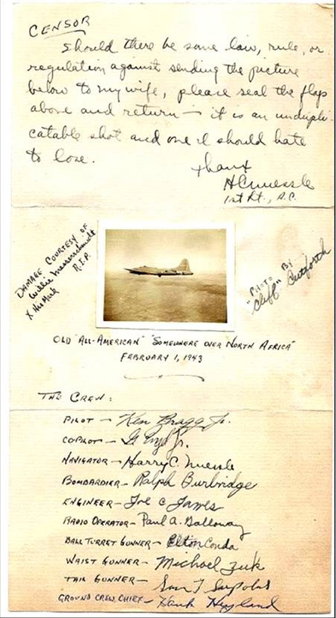 CENSOR
Should there be some law, rule, or
regulation against sending the picture
below to my wife, please seal the flap
above and return — it is an undupli-
catable shot and one I should hate
to lose.
Thanx
HC Nuessle
1st Lt., A.C.
DAMAGE COURTESY OF
Willie Messerschmidt
R.I.P.
"PHOTO" BY
"Cliff" Cutforth
OLD "ALL-AMERICAN" "SOMEWHERE OVER NORTH AFRICA"
FEBRUARY 1, 1943
THE CREW:
PILOT — Ken Bragg Jr.
COPILOT — G. Jr.
NAVIGATOR — Harry C. Nuessle
BOMBARDIER — Ralph Burbridge
ENGINEER — Joe C James
RADIO OPERATOR — Paul A. Galloway
BALL TURRET GUNNER — Elton Conda
WAIST GUNNER — Michael Zuk
TAIL GUNNER — Sam T Sarpolus
GROUND CREW CHIEF — Hank Hyland